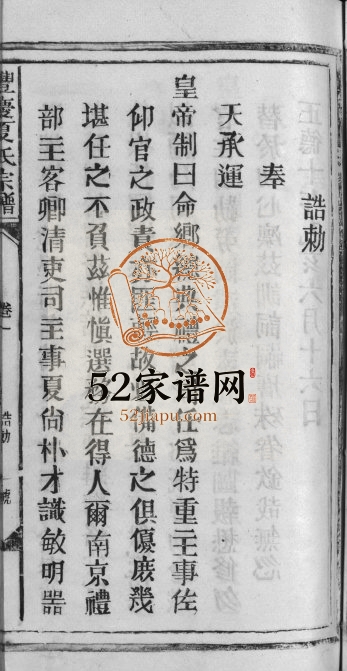 誥勅
奉
天承運
皇帝制曰命鄉典禮之任爲特重主事佐
仰官之政責亦匪故備德之俱優庶幾
堪任之不負茲惟愼選在得人爾南京禮
部主客卿清吏司主事夏尙朴才識敏明器
豐慶夏氏宗譜
卷一
誥勅
號
52家谱网
52jiapu.com